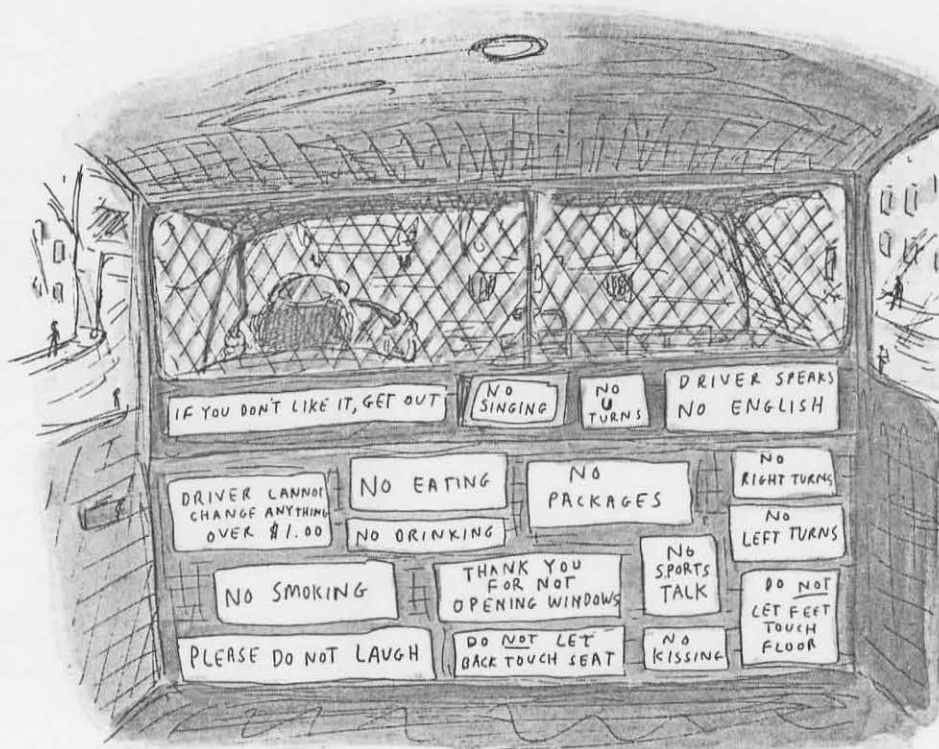 IF YOU DON'T LIKE IT, GET OUT
NO
SINGING
NO
U
TURNS
DRIVER SPEAKS
NO ENGLISH
DRIVER CANNOT
CHANGE ANYTHING
OVER $1.00
NO EATING
NO DRINKING
NO
PACKAGES
NO
RIGHT TURNS
NO
LEFT TURNS
NO SMOKING
THANK YOU
FOR NOT
OPENING WINDOWS
NO
SPORTS
TALK
DO NOT
LET FEET
TOUCH
FLOOR
PLEASE DO NOT LAUGH
DO NOT LET
BACK TOUCH SEAT
NO
KISSING